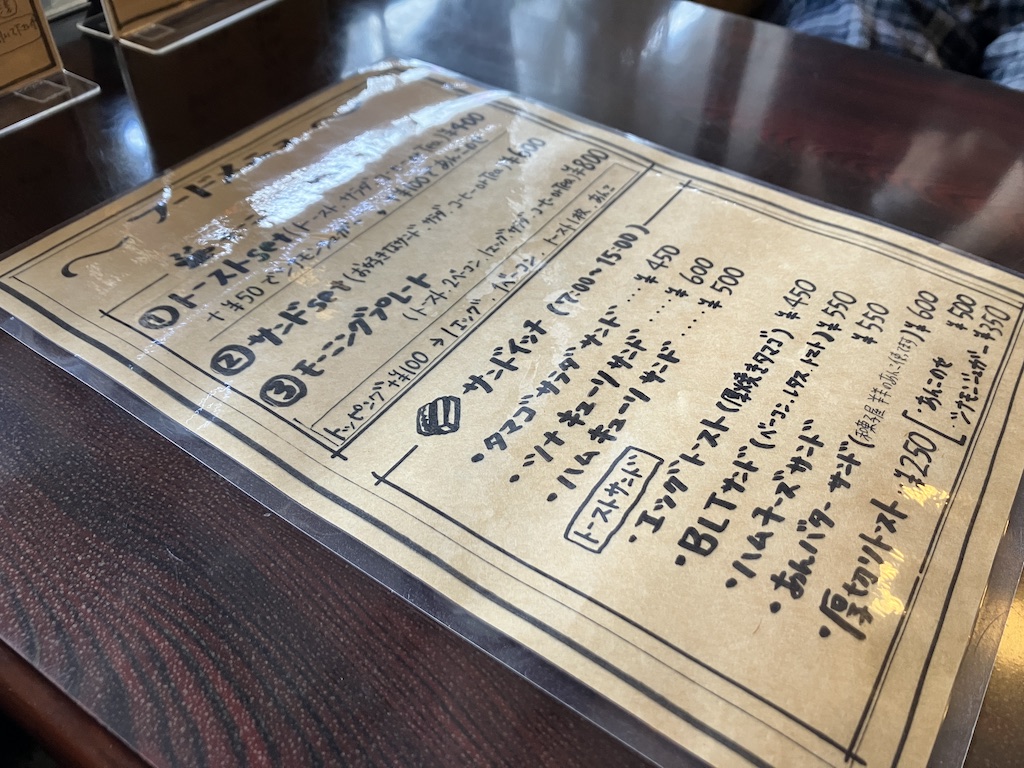 フード
① トーストset (トースト サラダ コーヒーorTea) ¥400
+¥50でシナモンシュガー、+¥100で あんこのせ
② サンドset (お好きなサンド、サラダ、コーヒーorTea) ¥600
③ モーニングプレート
(トースト、2ベーコン、1エッグ、サラダ、コーヒーorTea) ¥800
トッピング +¥100 → 1エッグ、1ベーコン トースト1枚 あんこ
サンドイッチ (7:00〜15:00)
・タマゴサラダサンド ¥450
・ツナキューリサンド ¥600
・ハムキューリサンド ¥500
トーストサンド
・エッグトースト(厚焼きタマゴ) ¥450
・BLTサンド(ベーコン、レタス、トマト) ¥550
・ハムチーズサンド ¥550
・あんバターサンド ¥600
・厚切りトースト ¥250
・あんこのせ ¥500
・シナモンシュガー ¥350